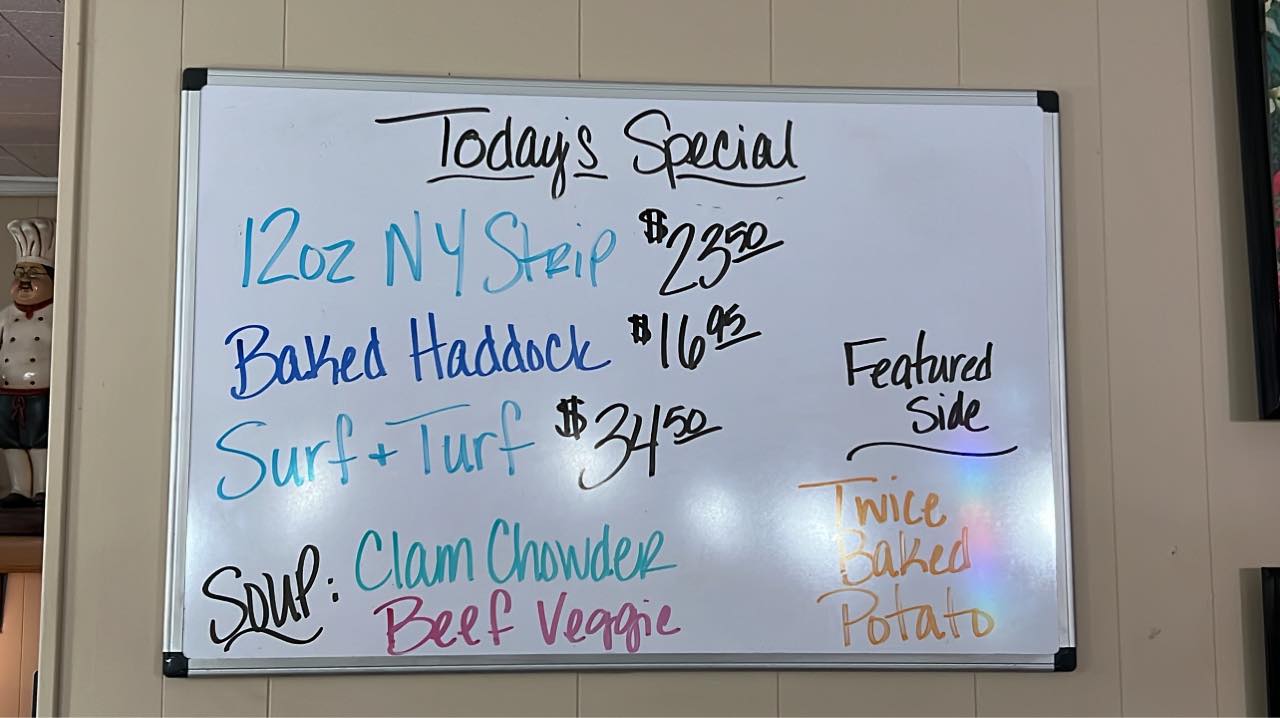 Today's Special
12oz NY Strip $23.50
Baked Haddock $16.95
Surf + Turf $34.50
Soup: Clam Chowder
Beef Veggie
Featured
Side
Twice
Baked
Potato